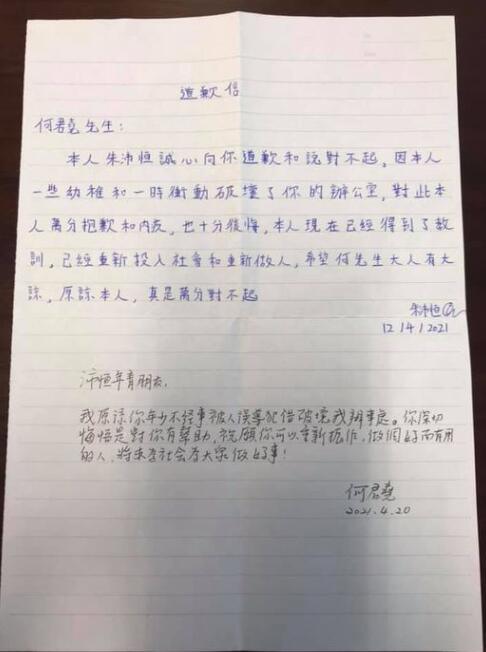 道歉信
何君堯先生:
本人朱沛恒誠心向你道歉和說對不起。因本人
一些幼稚和一時衝動破壞了你的辦公室,對此本
人萬分抱歉和内疚,也十分後悔,本人現在已經得到了教
訓,已經重新投入社會和重新做人,希望何先生大人有大
諒,原諒本人,真是萬分對不起
朱沛恒
12/4/2021
沛恒年青朋友,
我原諒你年少不經事被人誤導犯借破壞我辦事處。你深切
悔悟是對你有幫助,祝願你可以重新振作,做個好而有用
的人,將來為社會為大家做好事!
何君堯
2021.4.20